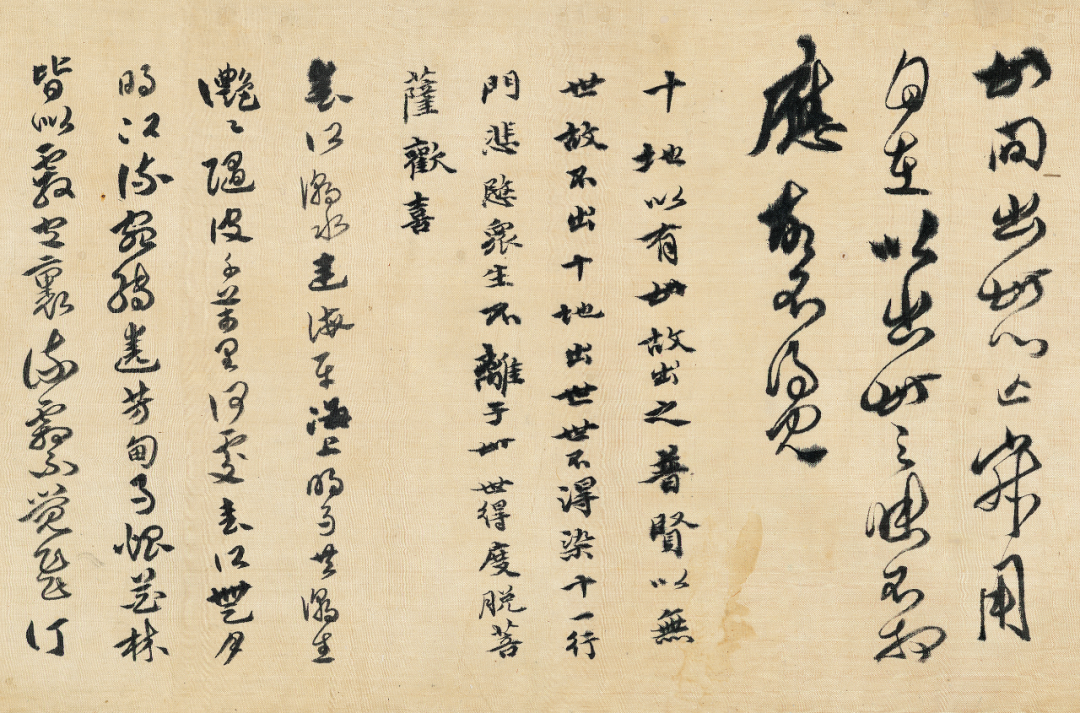 世間出世心用
自在以出世三昧不相
應故不得見
十地以有世故出之普賢以無
世故不出十地出世世不得染十一行
門悲愍衆生不離于世世得度脱菩
薩歡喜
春江潮水連海平海上明月共潮生
灔〻隨波千萬里何處春江無月
明江流宛轉遶芳甸月照花林
皆似霰空裏流霜不覺飛汀